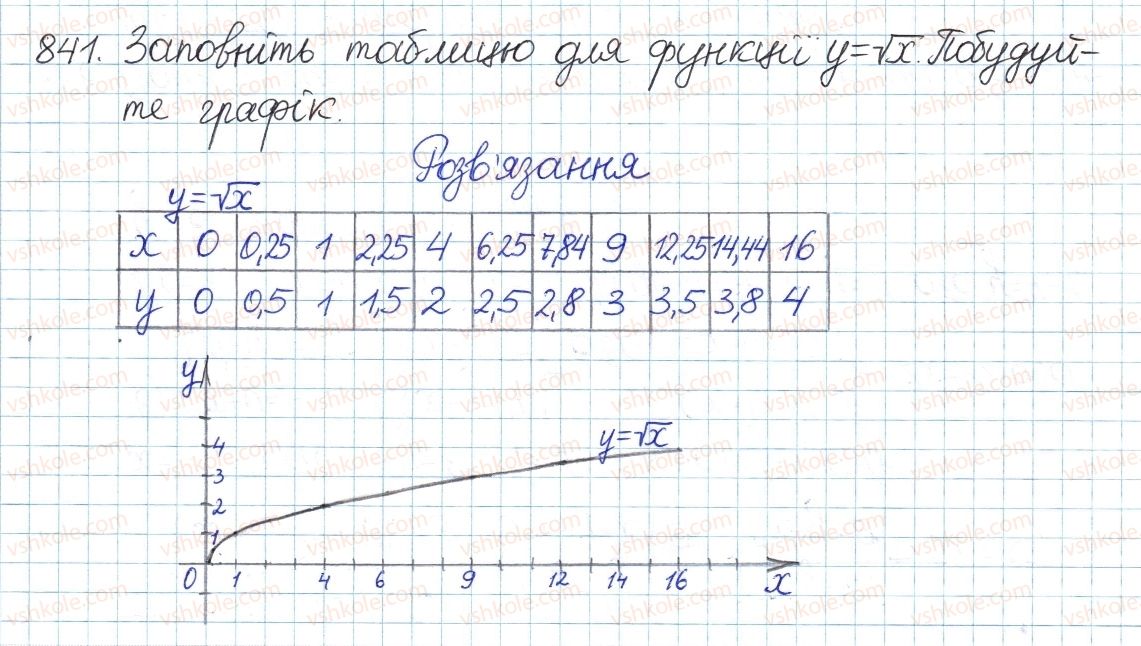 841. Заповніть таблицю для функції y=√x. Побудуй-
те графік.
Розв'язання
y=√x
x 0 0,25 1 2,25 4 6,25 7,84 9 12,25 14,44 16
y 0 0,5 1 1,5 2 2,5 2,8 3 3,5 3,8 4
y
4
3
2
1
y=√x
0 1 4 6 9 12 14 16 x
vshkole.com